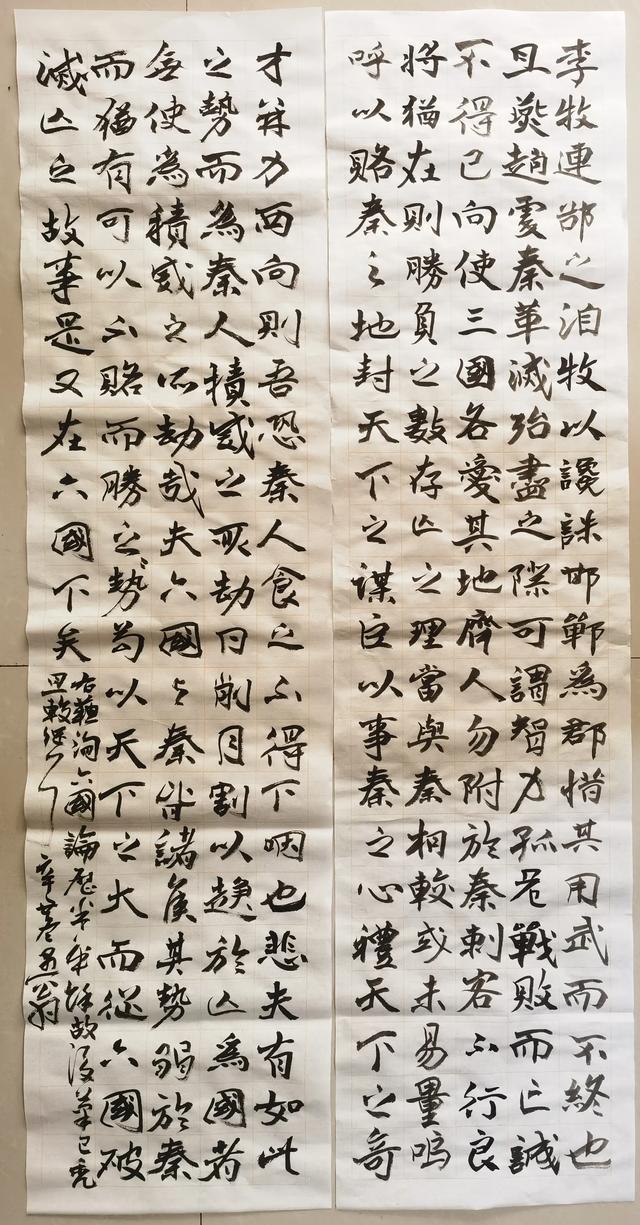 李牧連卻之洎牧以讒誅邯鄲為郡惜其用武而不終也
且燕趙處秦革滅殆盡之際可謂智力孤危戰敗而亡誠
不得已向使三國各愛其地齊人勿附於秦刺客不行良
將猶在則勝負之數存亡之理當與秦相較或未易量嗚
呼以賂秦之地封天下之謀臣以事秦之心禮天下之奇
才并力西向則吾恐秦人食之不得下咽也悲夫有如此
之勢而為秦人積威之所劫日削月割以趨於亡為國者
無使為積威之所劫哉夫六國與秦皆諸侯其勢弱於秦
而猶有可以不賂而勝之〻勢苟以天下之大而從六國破
滅亡之故事是又在六國下矣
右蘇洵六國論歷半年餘故
翁